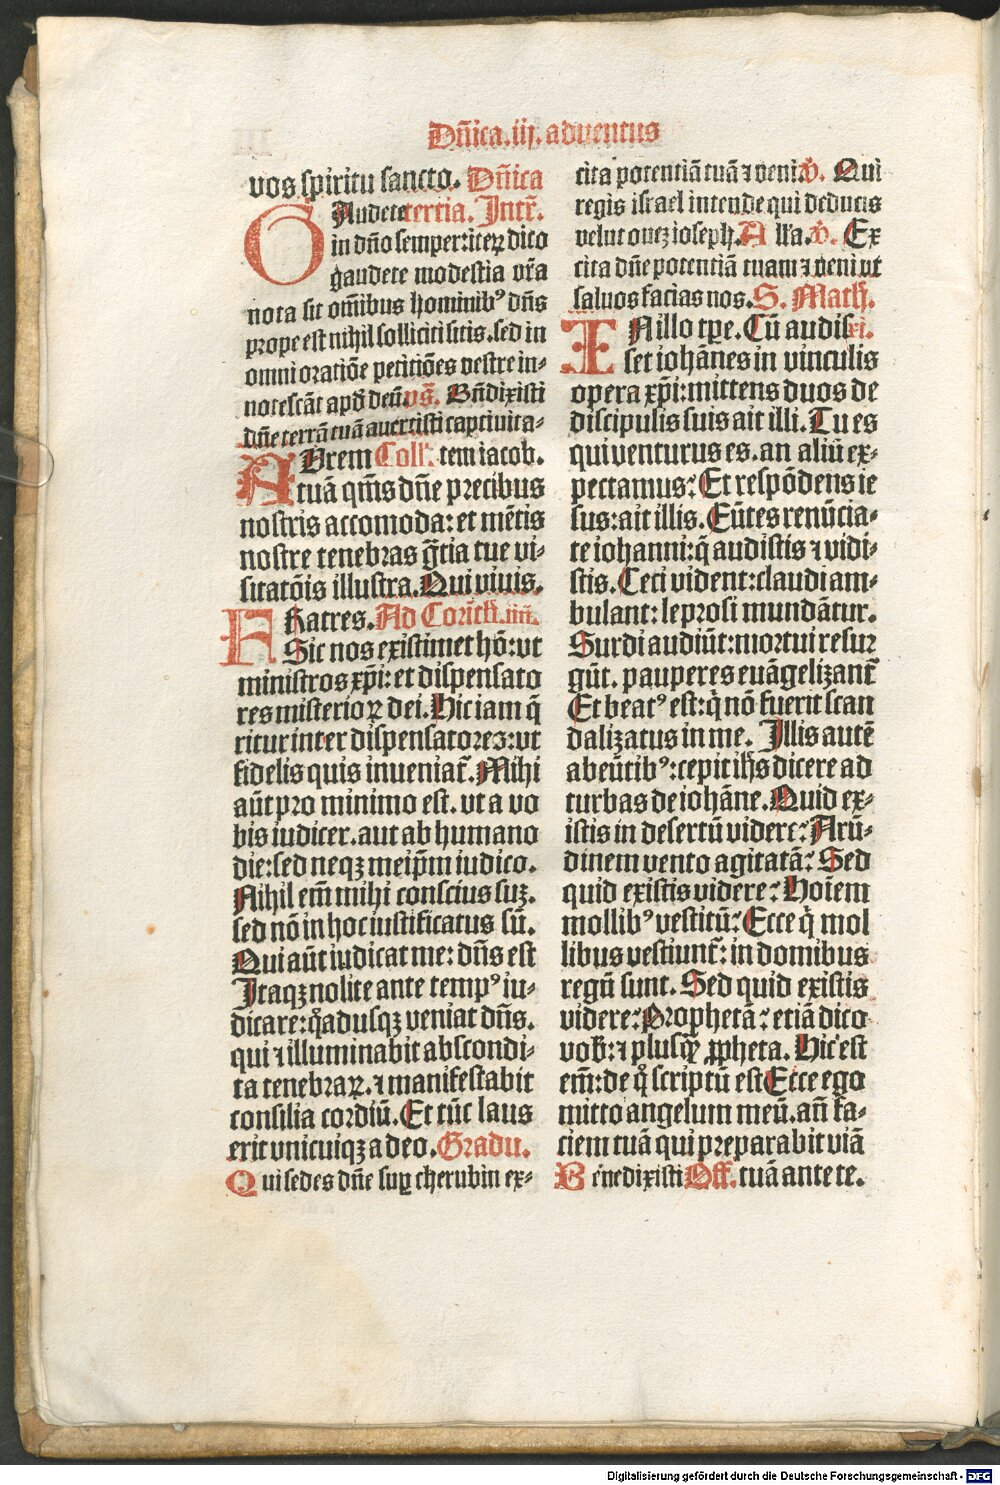 Dñica.iij.aduentus
vos spiritu sancto. Dñica
GAudete tertia. Intr̃.
in dño semper:iteꝝ dico
gaudete modestia vr̃a
nota sit om̃ibus hominibꝰ dñs
prope est nihil solliciti sitis.sed in
omni oratiõe petitiões vestre in⸗
notescãt apd̛ deũ.vs̃. Bñdixisti
dñe terrã tuã auertisti captiuita⸗
AUrem Coll̃. tem iacob.
tuã qm̃s dñe precibus
nostris accomoda: et mẽtis
nostre tenebras gr̃tia tue vi⸗
sitatõis illustra. Qui viuis.
FRatres. Ad Corĩth. iiij.
Sic nos existimet hõ: vt
ministros xp̃i: et dispensato
res misterioꝝ dei. Hic iam q̃
ritur inter dispensatores: vt
fidelis quis inueniat̃. Mihi
aũt pro minimo est. vt a vo
bis iudicer. aut ab humano
die: sed neqꝫ meip̃m iudico.
Nihil em̃ mihi conscius suꝫ.
sed nõ in hoc iustificatus sũ.
Qui aũt iudicat me: dñs est
Itaqꝫ nolite ante tempꝰ iu⸗
dicare: q̊adusqꝫ veniat dñs.
qui ⁊ illuminabit abscondi⸗
ta tenebraꝝ. ⁊ manifestabit
consilia cordiũ. Et tũc laus
erit vnicuiqꝫ a deo. Gradu.
Qui sedes dñe suꝑ cherubin ex⸗
cita potentiã tuã ⁊ veni. v̛. Qui
regis israel intende qui deducis
velut oueꝫ ioseph. All'a. v̛. Ex
cita dñe potentiã tuam ⁊ veni vt
saluos facias nos. S. Math.
INillo tꝑe. Cũ audis xi.
set iohãnes in vinculis
opera xp̃i: mittens duos de
discipulis suis ait illi. Tu es
qui venturus es. an aliũ ex⸗
pectamus? Et respõdens ie
sus: ait illis. Eũtes renũcia⸗
te iohanni: q̃ audistis ⁊ vidi⸗
stis. Ceci vident: claudi am⸗
bulant: leprosi mundãtur.
Surdi audiũt: mortui resur
gũt. pauperes euãgelizant̃
Et beatꝰ est: q̇ nõ fuerit scan
dalizatus in me. Illis autẽ
abeũtibꝰ: cepit ih̃s dicere ad
turbas de iohãne. Quid ex⸗
istis in desertũ videre? Arũ⸗
dinem vento agitatã? Sed
quid existis videre? Hoĩem
mollibꝰ vestitũ? Ecce q̇ mol
libus vestiunt̃: in domibus
regũ sunt. Sed quid existis
videre? Prophetã? etiã dico
vob̃: ⁊ plusq̃ꝫ ꝓpheta. Hic est
em̃: de q̊ scriptũ est Ecce ego
mitto angelum meũ. añ fa⸗
ciem tuã qui preparabit viã
Benedixisti Off. tuã ante te.
Digitalisierung gefördert durch die Deutsche Forschungsgemeinschaft - DFG